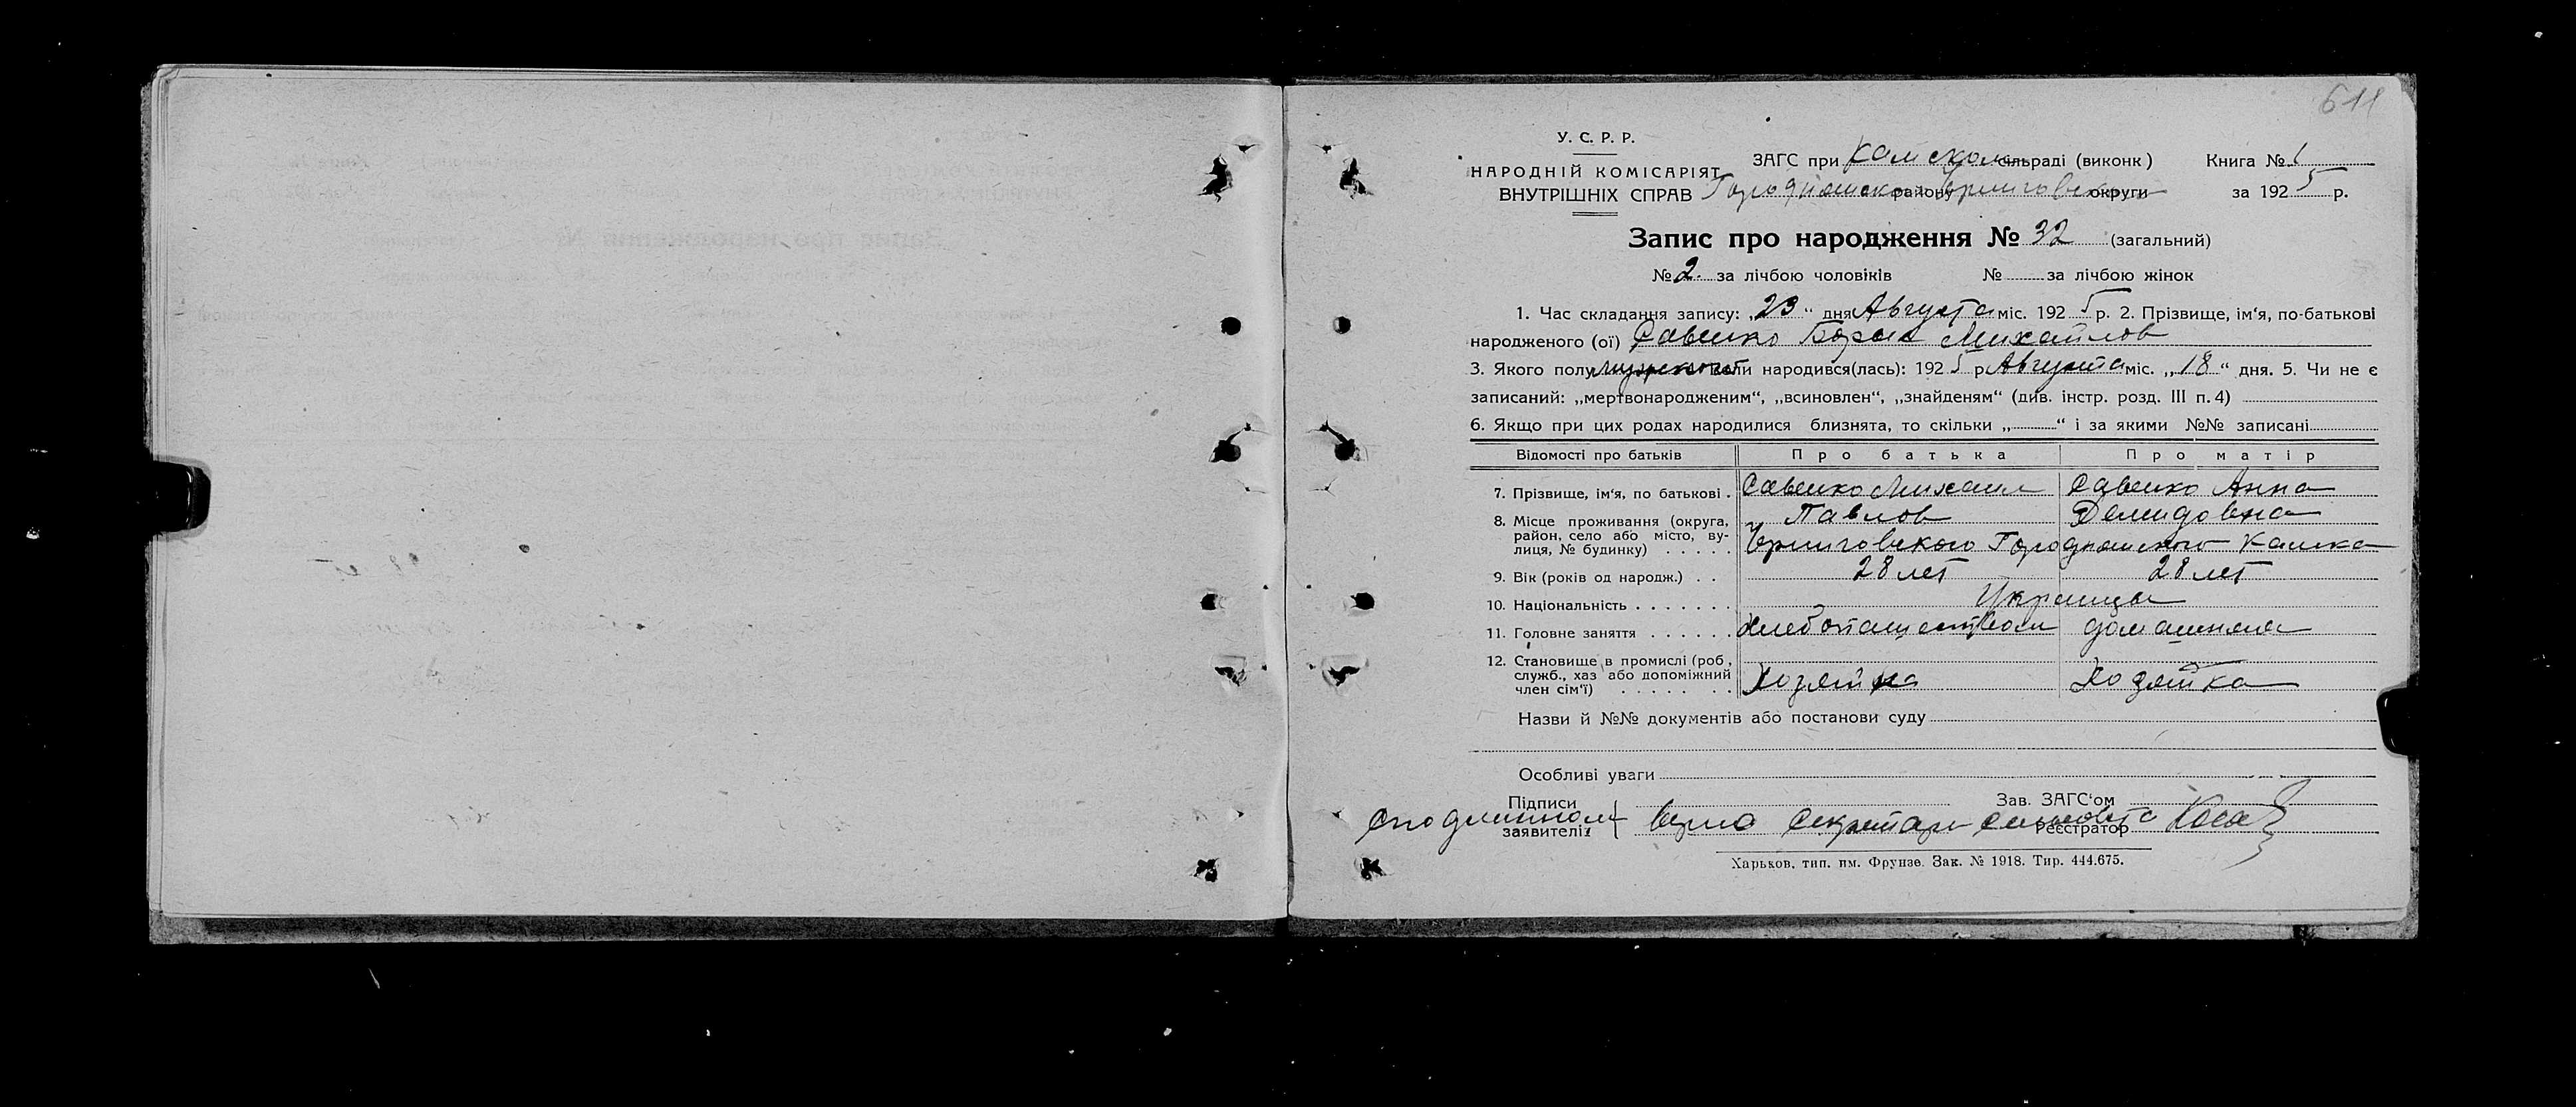 611
У. С. Р. Р.
НАРОДНІЙ КОМІСАРІЯТ
ВНУТРІШНІХ СПРАВ
ЗАГС при Камском сільраді (виконк) Книга № 1
Городнянского району Черниговского округи за 1925 р.
Запис про народження № 32 (загальний)
№ 2 за лічбою чоловіків № за лічбою жінок
1. Час складання запису: „23“ дня Августа міс. 1925 р. 2. Прізвище, ім‘я, по-батькові
народженого (ої) Савенко Борис Михайлов
3. Якого полу мужского коли народився(лась): 1925 р. Августа міс. „18“ дня. 5. Чи не є
записаний: „мертвонародженим“, „всиновлен“, „знайденям“ (див. інстр. розд. III п. 4)
6. Якщо при цих родах народилися близнята, то скільки „ “ і за якими №№ записані
Відомості про батьків Про батька Про матір
7. Прізвище, ім‘я, по батькові . Савенко Михаил Савенко Анна
Павлов Демидовна
8. Місце проживання (округа,
район, село або місто, ву-
лиця, № будинку) . . . . . Черниговского Городнянского Камка
9. Вік (років од народж.) . . 28 лет 28 лет
10. Національність . . . . . . . Украинцы
11. Головне заняття . . . . . . Хлебопашеством домашняя
12. Становище в промислі (роб.,
служб., хаз або допоміжний
член сім‘ї) . . . . . . . Хозяина Хозяйка
Назви й №№ документів або постанови суду
Особливі уваги
Підписи
заявителів
Зав. ЗАГС‘ом
Реєстратор
С подлинном верно Секретарь сельсовета
Харьков, тип. им. Фрунзе. Зак. № 1918. Тир. 444.675.